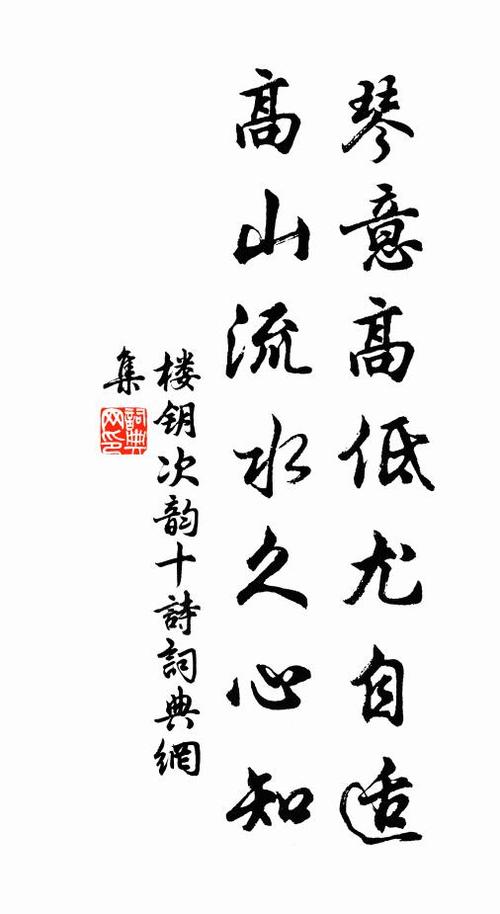 琴意高低尤自适
高山流水久心知
楼钥次韵十詩詞典網
集
詞典网印